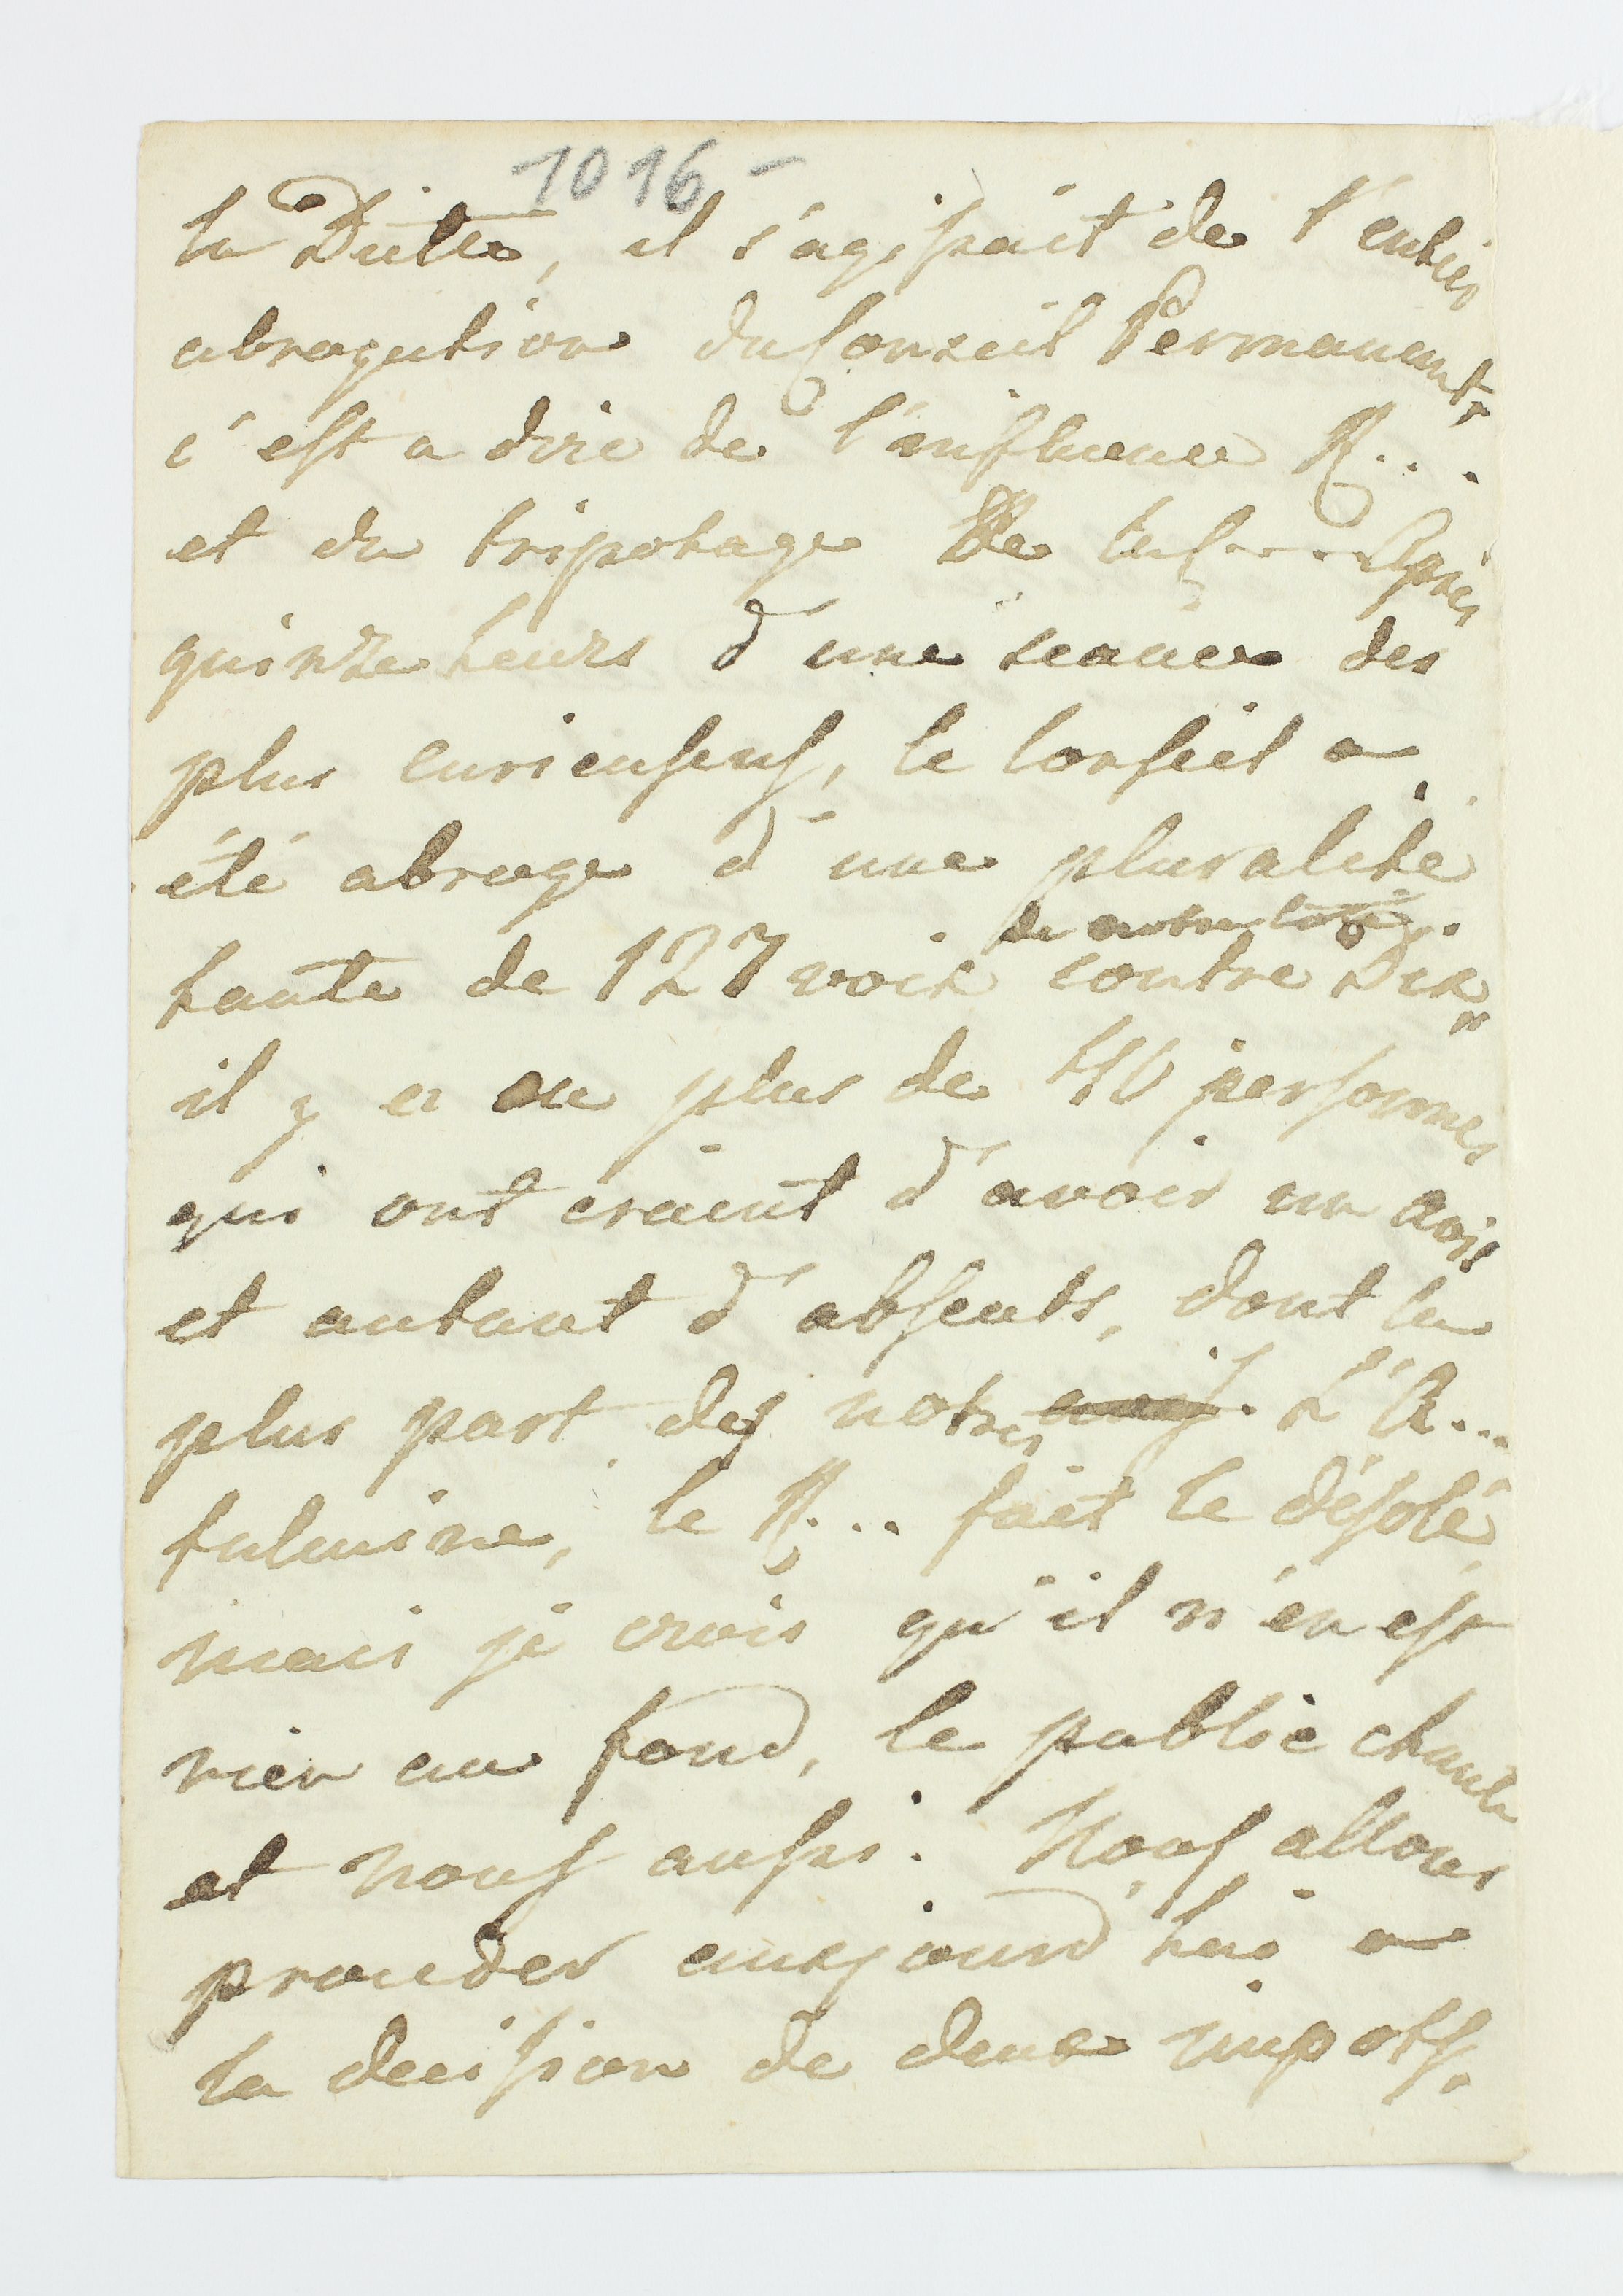 1016 -
la Diette, il s'agissait de l'entier
abrogation du Conseil Permanent,
c'est a dire de l'influence R...
et du tripotage de la C.... Après
quinze heurs d'une seance des
plus curieuseus, le Conseil a
été abroge d'une pluralité
haute de 127 voix contre Dix,
il y a eu plus de personnes
qui ont craint d'avoir un avis
et autant d'absents, dont la
plus part des notres. L'A...
fulmine, le R... fait le désolé,
mais je crois qu'il n'en est
rien au fond, le public chante
et nous aussi. Nous allons
proceder aujourd'hui a
la decision de deux impots,